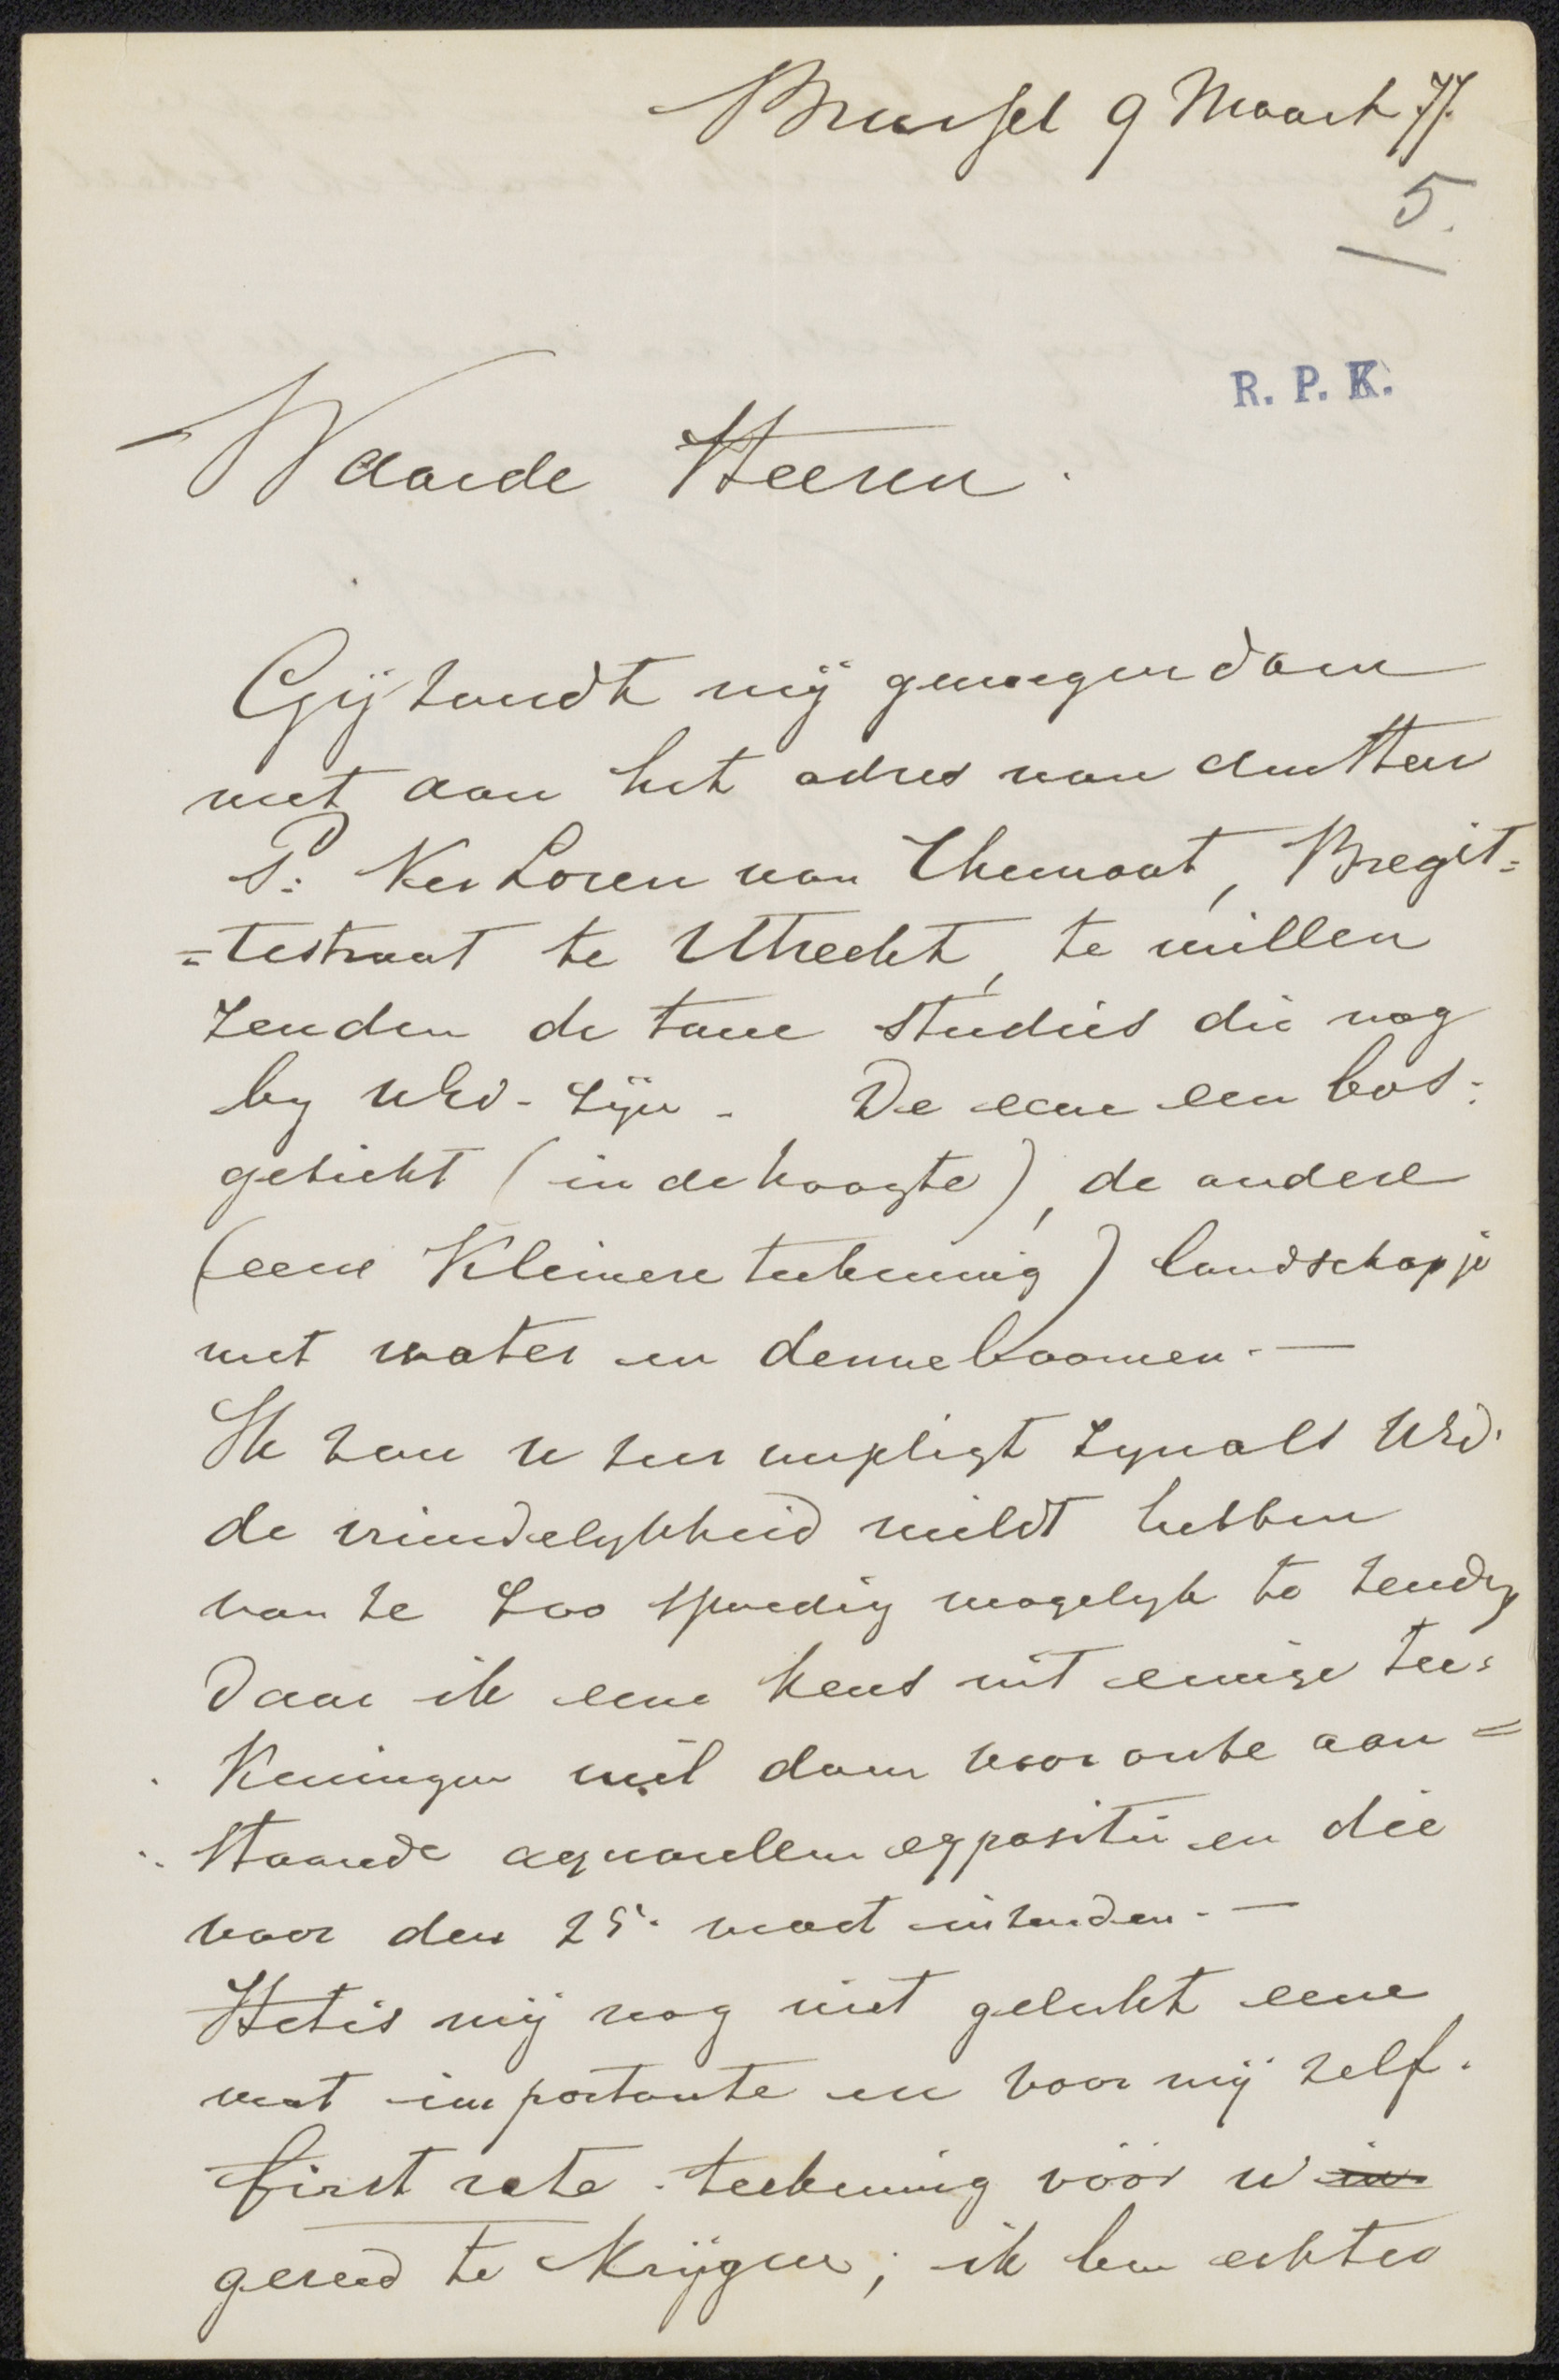 Brussel 9 Maart 77.
5.
R. P. K.
Waarde Heeren.
Gij zoudt mij genoegen doen
met aan het adres van den Heer
P: Ver Loren van Themaat, Bregit=
=testraat te Utrecht, te willen
zenden de twee studies die nog
by UEd. zijn. De eene een bos=
gezicht (in de hoogte), de andere
(eene kleinere teekening) landschapje
met water en denneboomen. —
Ik zou u zeer verpligt zyn als UEd.
de vriendelykheid wildt hebben
van ze zoo spoedig mogelyk te zenden
daar ik eene keus uit eenige tee=
keningen wil doen voor onze aan=
staande aquarellen expositie en die
voor den 25. moet inzenden. —
Het is mij nog niet gelukt eene
wat importante en voor mij zelf.
first rate teekening vóór u
gereed te krijgen; ik ben echter